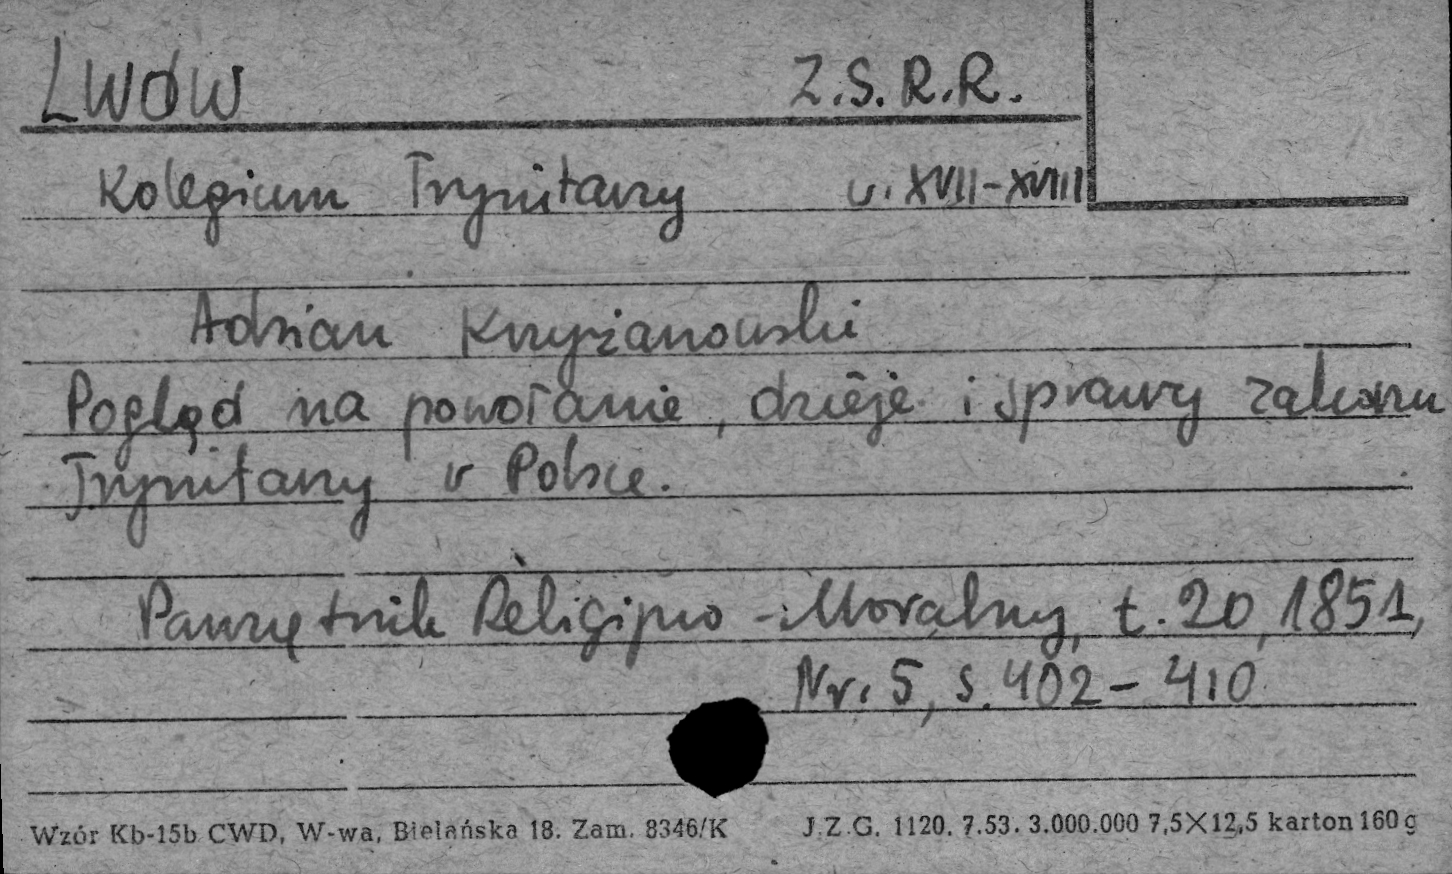 LWÓW Z.S.R.R.
Kolegium Trynitarzy w. XVII-XVIII
Adrian Krzyżanowski
Pogląd na powołanie, dzieje i sprawy zakonu
Trynitarzy w Polsce.
Pamiętnik Religijno-Moralny, t. 20, 1851,
Nr. 5, s. 402-410
Wzór Kb-15b CWD, W-wa, Bielańska 18. Zam. 8346/K J.Z.G. 1120. 7.53. 3.000.000 7,5×12,5 karton 160 g